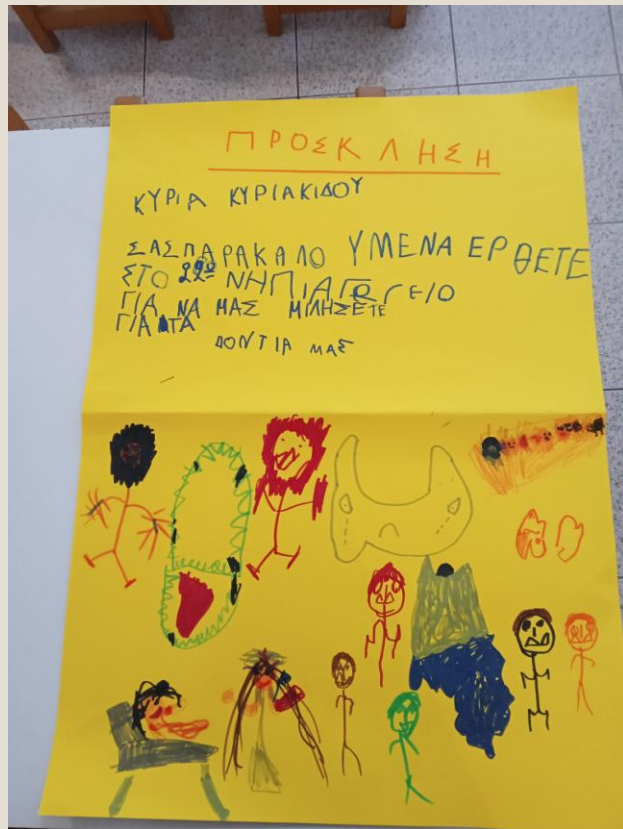 ΠΡΟΣΚΛΗΣΗ
ΚΥΡΙΑ ΚΥΡΙΑΚΙΔΟΥ
ΣΑΣΠΑΡΑΚΑΛΟ ΥΜΕΝΑ ΕΡΘΕΤΕ
ΣΤΟ 22º ΝΗΠΙΑΓΩΓΕΙΟ
ΓΙΑ ΝΑ ΜΑΣ ΜΙΛΗΣΕΤΕ
ΓΙΑ ΤΑ
ΔΟΝΤΙΑ ΜΑΣ